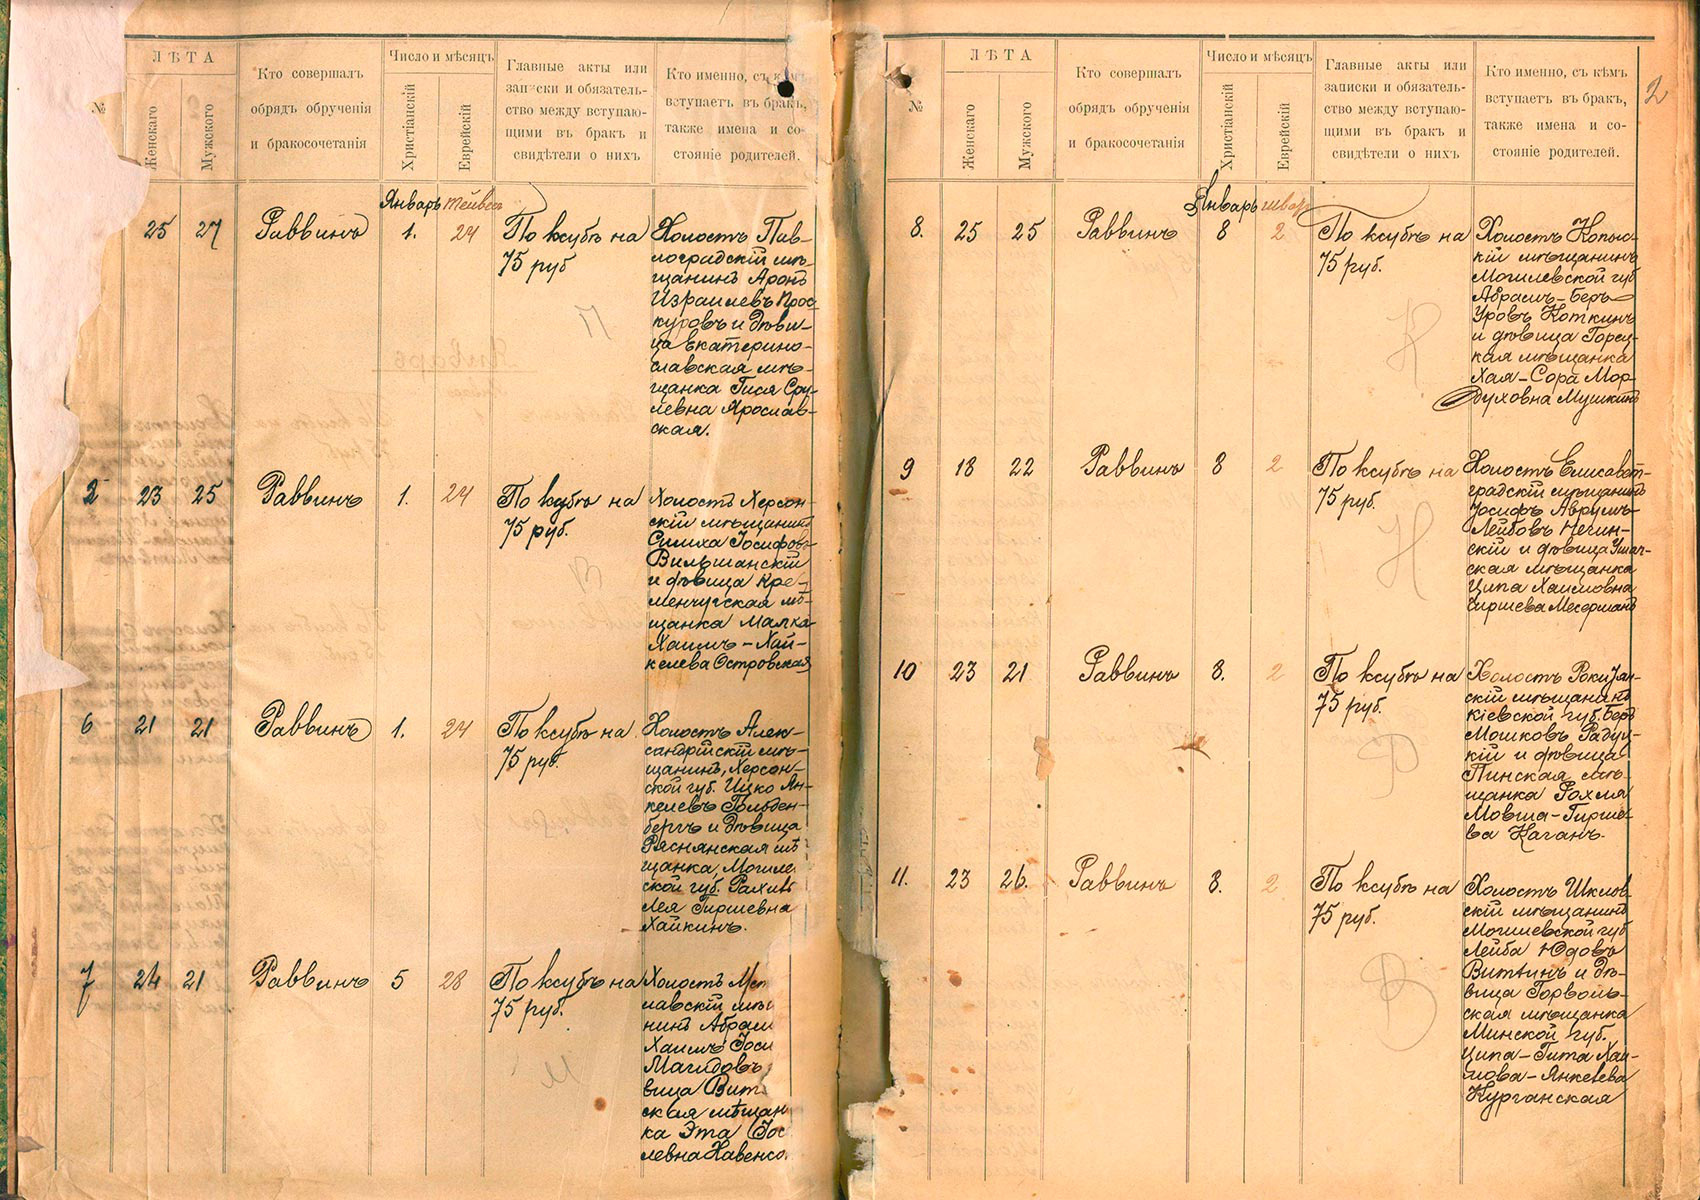 №
ЛѢТА
Женскаго
Мужского
Кто совершалъ
обрядъ обрученія
и бракосочетанія
Число и мѣсяцъ
Христіанскій
Еврейскій
Главные акты или
записки и обязатель-
ство между вступаю-
щими въ бракъ и
свидѣтели о нихъ
Кто именно, съ кѣмъ
вступаетъ въ бракъ,
также имена и со-
стояніе родителей.
Январь
25 27 Раввинъ 1. 24 По ксубѣ на
75 руб
Холостъ Пав-
лоградскій мѣ-
щанинъ Аронъ
Израилевъ Прос
куровъ и дѣви-
ца Екатерино-
славская мѣ-
щанка Гися Сру-
левна Ярослав-
ская.
2 23 25 Раввинъ 1. 24 По ксубѣ на
75 руб.
Холостъ Херсон-
скій мѣщанинъ
Симха Іосифовъ
Вильшанскій
и дѣвица Кре-
менчугская мѣ-
щанка Малка
Хаимъ-Хай-
келева Островская
6 21 21 Раввинъ 1. 24 По ксубѣ на
75 руб.
Холостъ Алек-
сандрійскій мѣ-
щанинъ, Херсон-
ской губ. Ицко Ян-
келевъ Гольден-
бергъ и дѣвица
Ряснянская мѣ
щанка, Могиле
ской губ.
Лея Гиршевна
Хайкинъ.
7 24 21 Раввинъ 5 28 По ксубѣ на
75 руб.
Холостъ
лавскій мѣщ
нинъ Абрам
Хаимъ Іоси
Магидовъ
вица Вит
ская мѣщан
ка Эта Іос
левна
2
№
ЛѢТА
Женскаго
Мужского
Кто совершалъ
обрядъ обрученія
и бракосочетанія
Число и мѣсяцъ
Христіанскій
Еврейскій
Главные акты или
записки и обязатель-
ство между вступаю-
щими въ бракъ и
свидѣтели о нихъ
Кто именно, съ кѣмъ
вступаетъ въ бракъ,
также имена и со-
стояніе родителей.
Январь
8. 25 25 Раввинъ 8 2 По ксубѣ на
75 руб.
Холостъ Копыс-
кій мѣщанинъ
Могилевской губ
Абрамъ-Беръ
Уровъ Коткинъ
и дѣвица Горец-
кая мѣщанка
Хая-Сора Мор-
духовна Мушкинъ
9 18 22 Раввинъ 8 2 По ксубѣ на
75 руб.
Холостъ Елисавет-
градскій мѣщанинъ
Іосифъ Аврумъ-
Лейбовъ Нечин-
скій и дѣвица Ушач-
ская мѣщанка
Ципа Хаимовна
Гиршева Месерманъ
10 23 21 Раввинъ 8. 2 По ксубѣ на
75 руб.
Холостъ
скій мѣщанинъ
Кіевской губ. Беръ
Мошковъ Радуц-
кій и дѣвица
Пинская мѣ-
щанка Рохля
Мовша-Гирше-
ва Каганъ.
11. 23 26. Раввинъ 8. 2 По ксубѣ на
75 руб.
Холостъ Шклов
скій мѣщанинъ
Могилевской губ
Лейба Юдовъ
Виткинъ и дѣ-
вица Горволь-
ская мѣщанка
Минской губ.
Ципа-Гита Хаи-
мова-Янкелева
Курганская